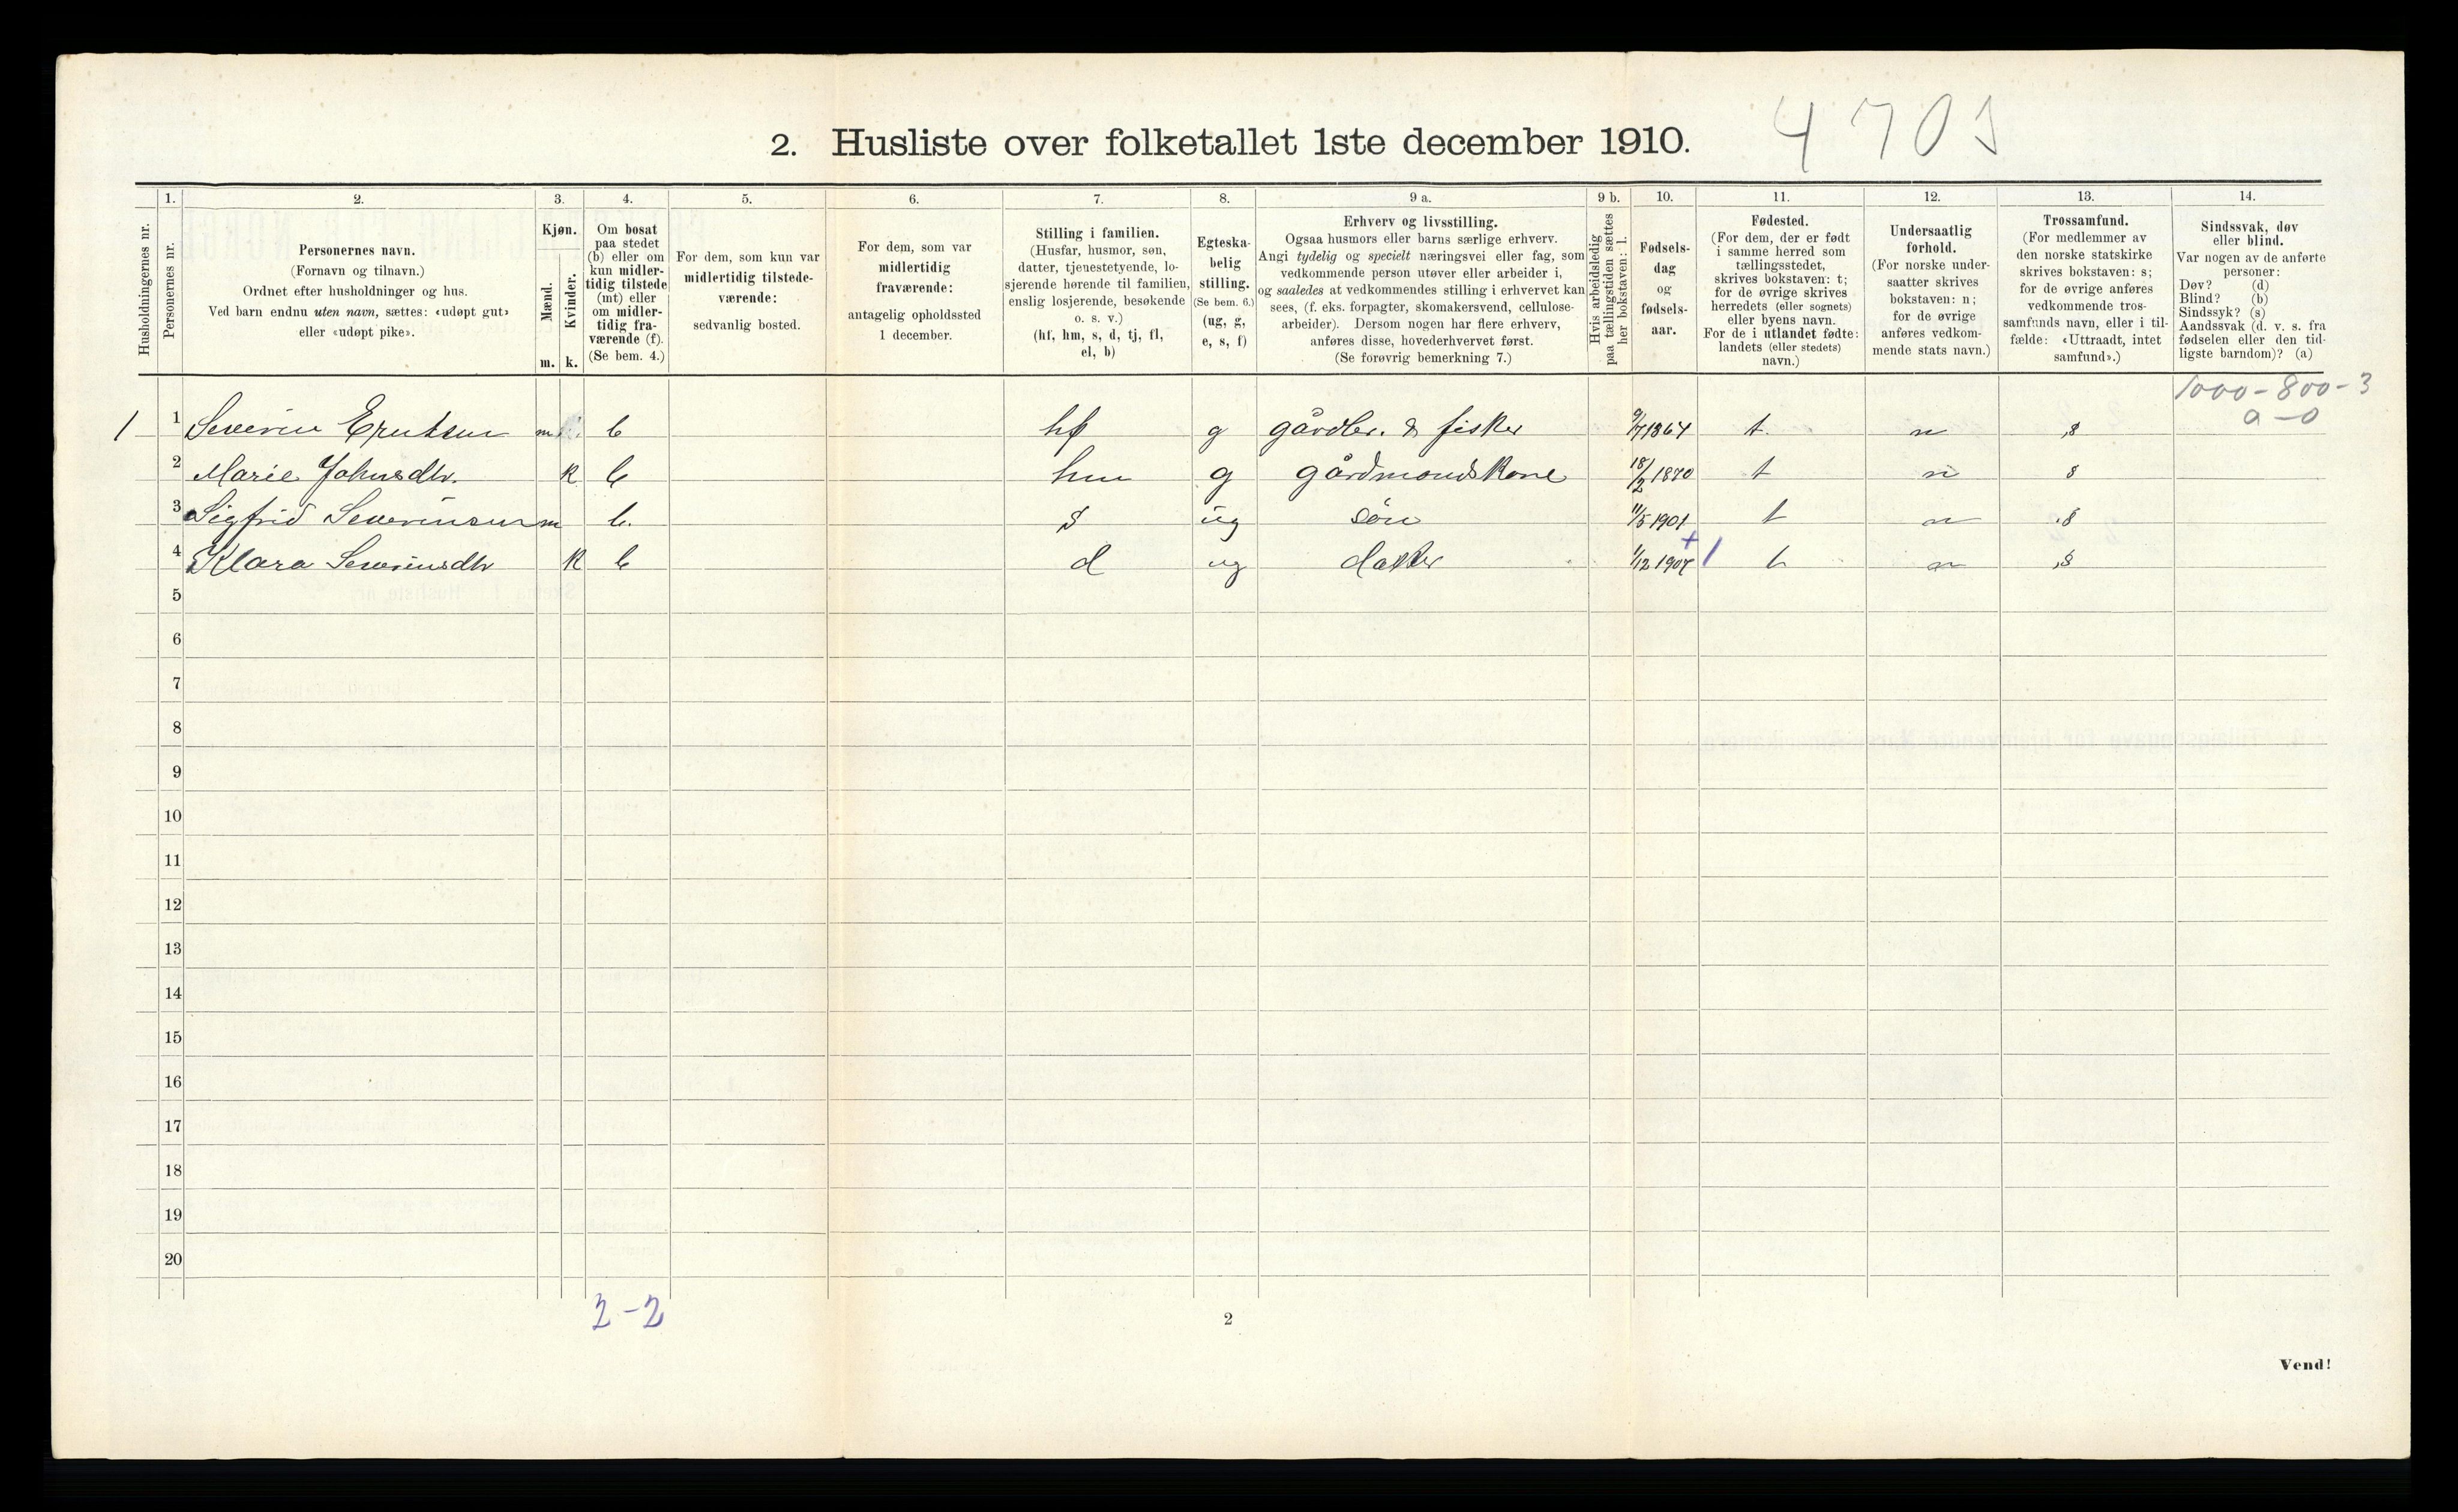 2. Husliste over folketallet 1ste december 1910.
1. 2. 3. 4. 5. 6. 7. 8. 9 a. 9 b. 10. 11. 12. 13. 14.
Husholdningernes nr.
Personernes nr.
Personernes navn.
(Fornavn og tilnavn.)
Ordnet efter husholdninger og hus.
Ved barn endnu uten navn, sættes: «udøpt gut»
eller «udøpt pike».
Kjøn.
Mænd.
Kvinder.
m. k.
Om bosat
paa stedet
(b) eller om
kun midler-
tidig tilstede
(mt) eller
om midler-
tidig fra-
værende (f).
(Se bem. 4.)
For dem, som kun var
midlertidig tilstede-
værende:
sedvanlig bosted.
For dem, som var
midlertidig
fraværende:
antagelig opholdssted
1 december.
Stilling i familien.
(Husfar, husmor, søn,
datter, tjenestetyende, lo-
sjerende hørende til familien,
enslig losjerende, besøkende
o. s. v.)
(hf, hm, s, d, tj, fl,
el, b)
Egteska-
belig
stilling.
(Se bem. 6.)
(ug, g,
e, s, f)
Erhverv og livsstilling.
Ogsaa husmors eller barns særlige erhverv.
Angi tydelig og specielt næringsvei eller fag, som
vedkommende person utøver eller arbeider i,
og saaledes at vedkommendes stilling i erhvervet kan
sees, (f. eks. forpagter, skomakersvend, cellulose-
arbeider). Dersom nogen har flere erhverv,
anføres disse, hovederhvervet først.
(Se forøvrig bemerkning 7.)
Hvis arbeidsledig
paa tællingstiden sættes
her bokstaven: l.
Fødsels-
dag
og
fødsels-
aar.
Fødested.
(For dem, der er født
i samme herred som
tællingsstedet,
skrives bokstaven: t;
for de øvrige skrives
herredets (eller sognets)
eller byens navn.
For de i utlandet fødte:
landets (eller stedets)
navn.)
Undersaatlig
forhold.
(For norske under-
saatter skrives
bokstaven: n;
for de øvrige
anføres vedkom-
mende stats navn.)
Trossamfund.
(For medlemmer av
den norske statskirke
skrives bokstaven: s;
for de øvrige anføres
vedkommende tros-
samfunds navn, eller i til-
fælde: «Uttraadt, intet
samfund».)
Sindssvak, døv
eller blind.
Var nogen av de anførte
personer:
Døv? (d)
Blind? (b)
Sindssyk? (s)
Aandssvak (d. v. s. fra
fødselen eller den tid-
ligste barndom)? (a)
1000-800-3
a-0
1 1 Severin m b hf g gårdbr. & fisker 9/7 1864 t. n s
2 Marie Johnsdtr. k b hm g gårdmandskone 18/2 1870 t n s
3 Sigfrid Severinsen m b. s ug søn 11/5 1901 t n s
4 Klara Severinsdtr k b d ug datter 1/12 1907 t n s
5
6
7
8
9
10
11
12
13
14
15
16
17
18
19
20
2-2
2
Vend!